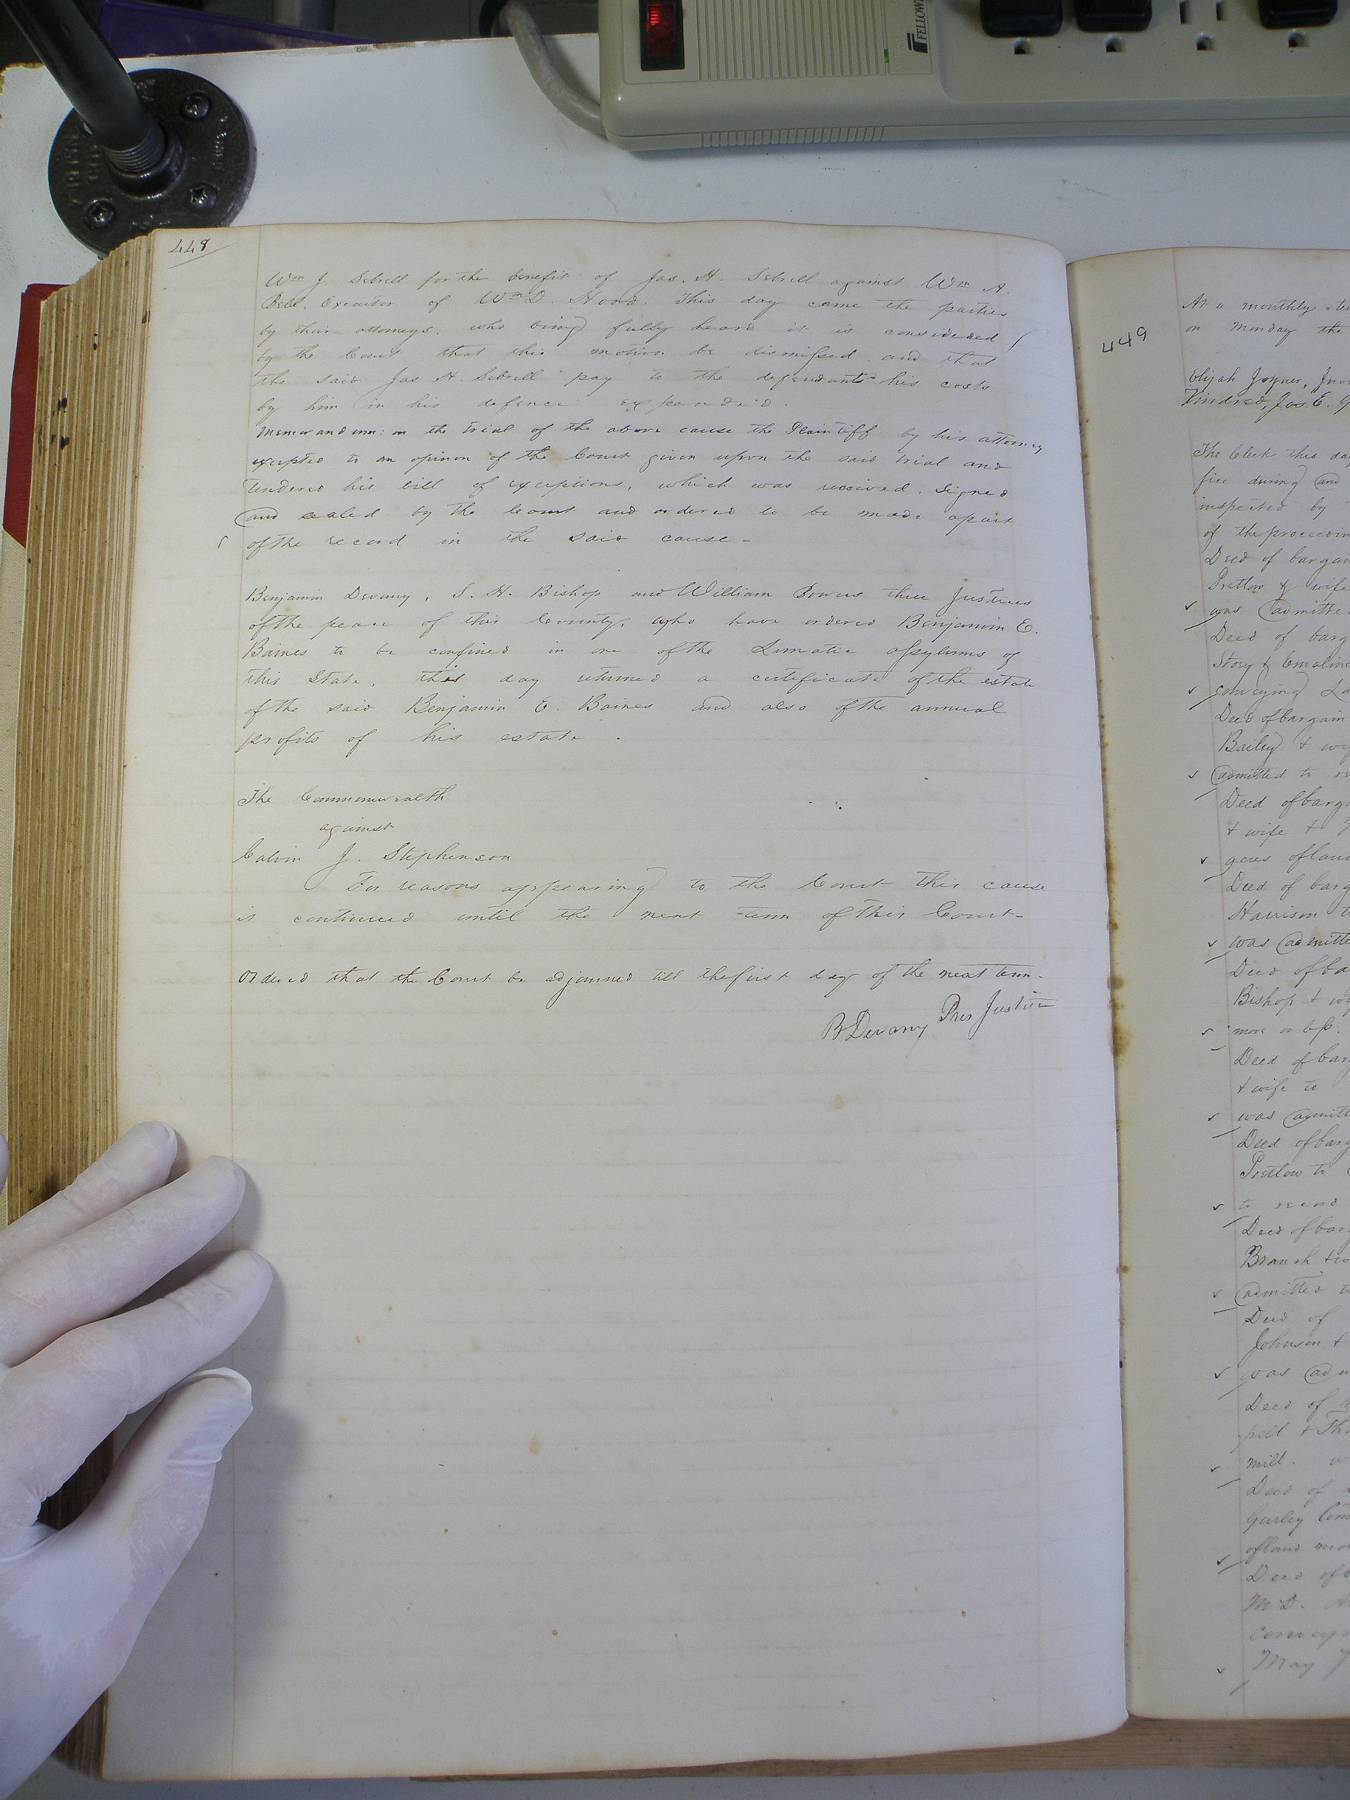 FELLOWES
448
Wm J. Sebrell for the benefit of Jas. H. Sebrell against Wm A.
Bell, Executor of Wm D. Hood. This day came the parties
by their attorneys, who being fully heard it is considered
by the Court that this motion be dismissed and that
the said Jas H. Sebrell pay to the defendant his costs
by him in his defence expended.
Memorandum: on the trial of the above cause the Plaintiff by his attorney
excepted to an opinion of the Court given upon the said trial and
tendered his bill of exceptions, which was received, signed
and sealed by the Court and ordered to be made apart
of the record in the said cause-
Benjamin Devany, S. H. Bishop and William Bowers three Justices
of the peace of this County, who have ordered Benjamin E.
Baines to be confined in one of the Lunatic assylums of
this State, this day returned a certificate of the estate
of the said Benjamin E. Baines and also of the annual
profits of his estate.
The Commonwealth
against
Calvin J. Stephenson
For reasons appearing to the Court this cause
is continued until the next term of this Court-
Ordered that the Court be adjourned till the first day of the next term-
B Devany Pres Justice
449
At a monthly
on Monday the
Elijah Joyner,
Kindred, Jas. E.
The Clerk this day
fice during and
inspected by
of the proceedin
Deed of bargain
Pretlow & wife
was admitte
Deed of barg
Story & Emaline
conveying
Deed of bargain
Bailey &
admitted to
Deed of barga
& wife
acres of land
Deed of barg
Harrison
was admitte
Deed of ba
Bishop &
more or less.
Deed of barg
& wife to
was admitt
Deed of barg
Pretlow to
to record
Deed of barg
Branch
admitted
Deed of
Johnson &
was
Deed of
mill.
Deed of
Gurley
of land
Deed of
M. D.
convey
May